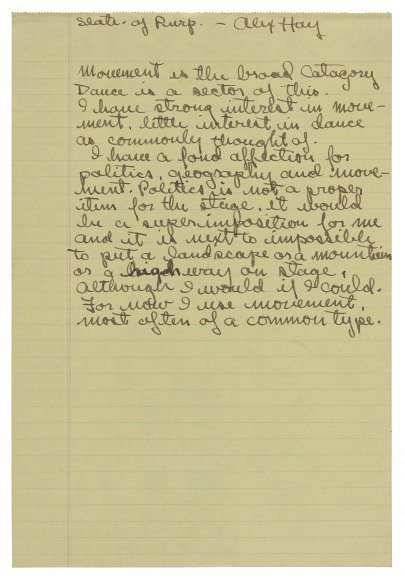 State. of Purp. - Alex Hay
Movement is the broad Catagory
Dance is a sector of this.
I have strong interest in move-
ment, little interest in dance
as commonly thought of.
I have a fond affection for
politics, geography and move-
ment. Politics is not a proper
item for the stage. it would
be a superimposition for me
and it is next to impossible
to put a landscape or a mountain
or a highway on stage,
although I would if I could.
For now I use movement,
most often of a common type.